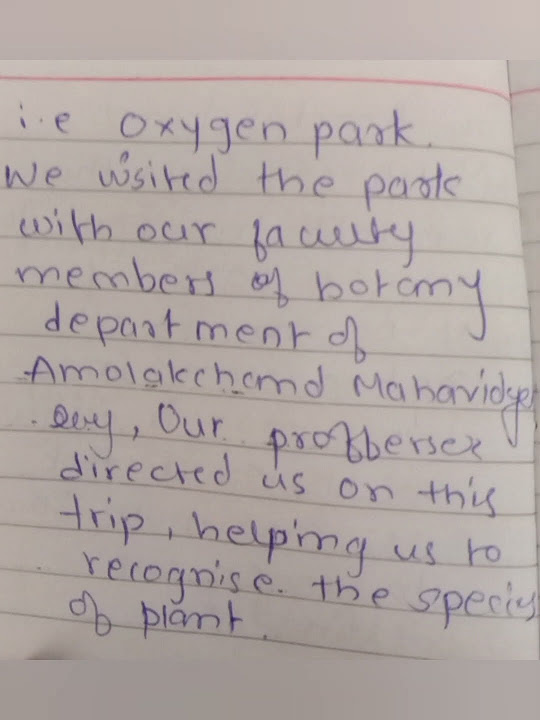 i.e oxygen park.
We visited the park
with our faculty
members of botany
department of
Amolakchand Mahavidya
lay, Our
directed us on this
trip, helping us to
recognise. the species
of plant.